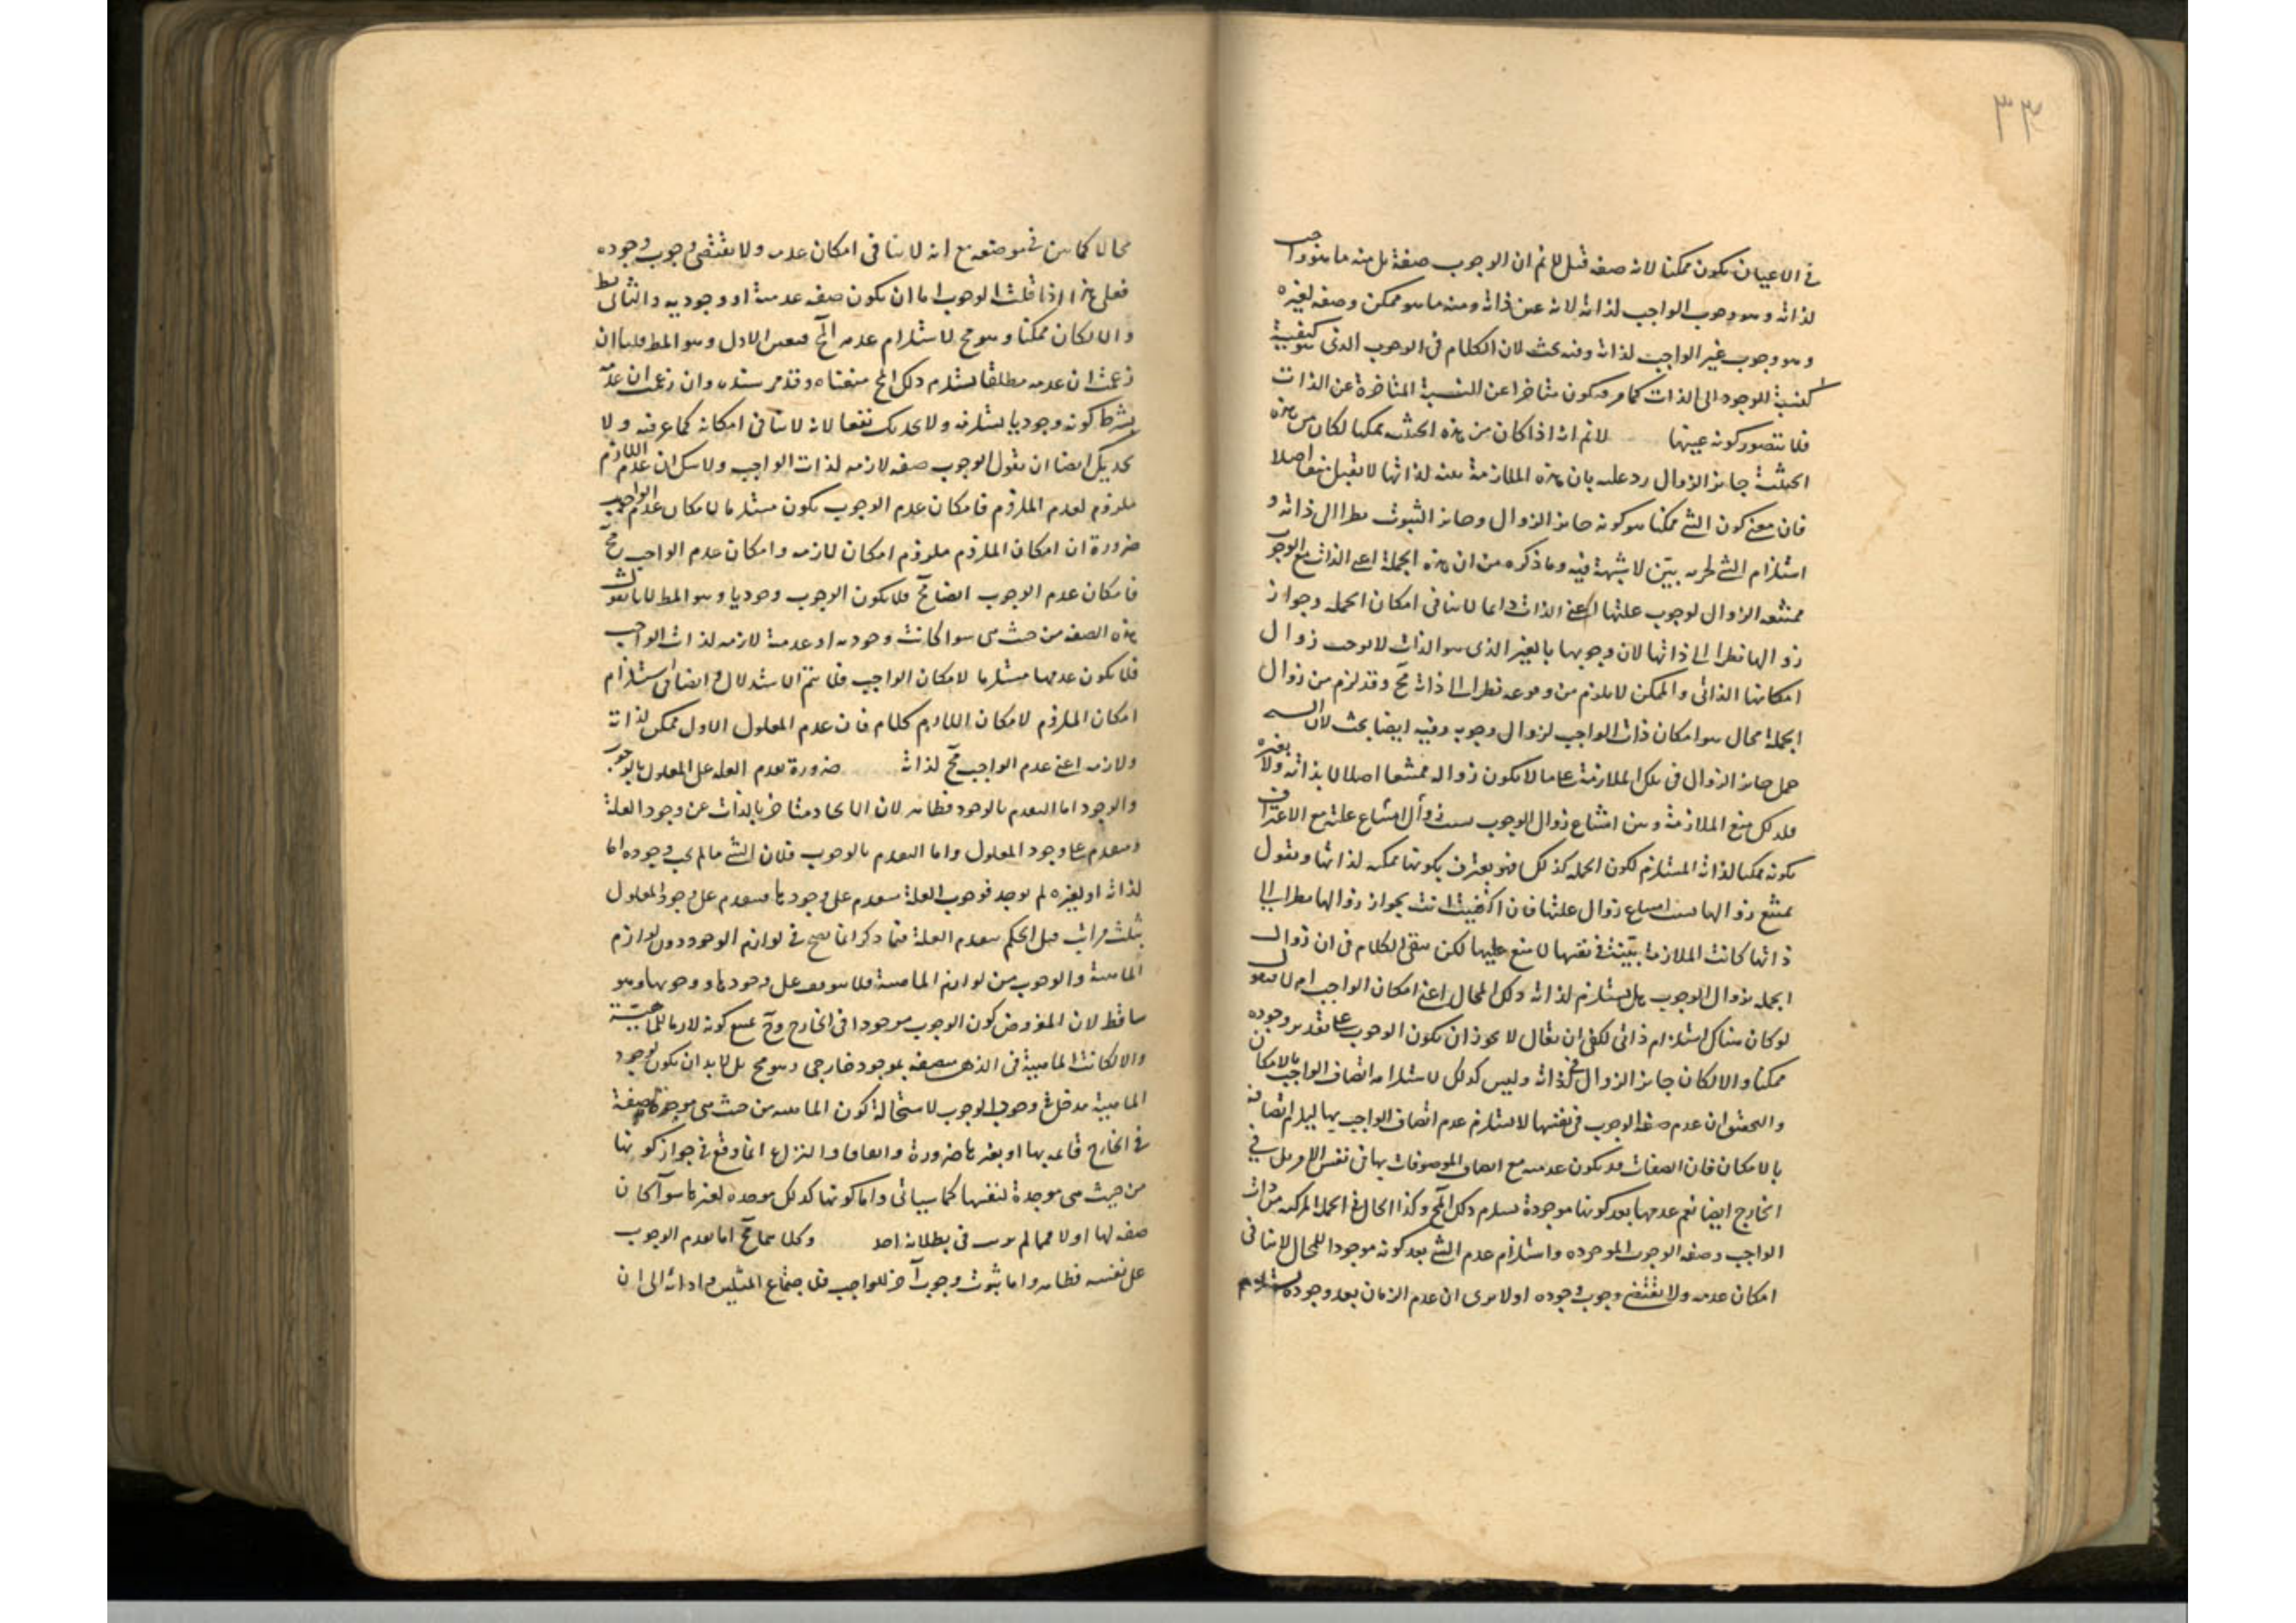 ٣٣
في الاعيان يكون ممكنا لانه صفة قيل لا نم ان الوجوب صفة بل منه ما هو واجب
لذاته وهو وجوب الواجب لذاته لانه عين ذاته ومنه ما هو ممكن وصفة لغيره
وهو وجوب غير الواجب لذاته وفيه بحث لان الكلام في الوجوب الذي هو كيفية
لنسبة الوجود الى الذات كما مر فيكون متاخرا عن النسبة المتاخرة عن الذات
فلا يتصور كونه عينها لا نم انه اذا كان من هذه الحيثية ممكنا لكان من هذه
الحيثية جايز الزوال رد عليه بان هذه الملازمة بينة لذاتها لا تقبل منعا اصلا
فان معنى كون الشئ ممكنا هو كونه جايز الزوال وجايز الثبوت نظرا الى ذاته و
استلزام الشئ لجزئه بين لا شبهة فيه وما ذكره من ان هذه الجملة اعني الذات مع الوجوب
ممتنعة الزوال لوجوب علتها اعني الذات دائما لا ينافي امكان الجملة وجواز
زوالها نظرا الى ذاتها لان وجوبها بالغير الذي هو الذات لا يوجب زوال
امكانها الذاتي والممكن لا يلزم من وقوعه نظرا الى ذاته مح وقد لزم من زوال
الجملة محال هو امكان ذات الواجب لزوال وجوبه وفيه ايضا بحث لان
حمل جايز الزوال في تلك الملازمة على ما لا يكون زواله ممتنعا اصلا لا بذاته ولا بغيره
فلذلك منع الملازمة وبين امتناع زوال الوجوب بسبب زوال امتناع علته مع الاعتراف
بكونه ممكنا لذاته المستلزم لكون الجملة كذلك فهو يعترف بكونها ممكنة لذاتها ويقول
يمتنع زوالها بسبب امتناع زوال علتها فان اكتفيت انت بجواز زوالها نظرا الى
ذاتها كانت الملازمة بينة في نفسها لا منع عليها لكن يبقى الكلام في ان زوال
الجملة بزوال الوجوب هل يستلزم لذاته ذلك المحال اعني امكان الواجب ام لا فنقول
لو كان هناك استلزام ذاتي لكفى ان يقال لا يجوز ان يكون الوجوب على تقدير وجوده
ممكنا والا لكان جايز الزوال في ذاته وليس كذلك لاستلزامه اتصاف الواجب بالامكان
والتحقيق ان عدم صفة الوجوب في نفسها لا يستلزم عدم اتصاف الواجب بها ليلزم اتصافه
بالامكان فان الصفات قد تكون عدمية مع اتصاف الموصوفات بها في نفس الامر بل في
الخارج ايضا نعم عدمها بعد كونها موجودة يستلزم ذلك المح وكذا الحال في الجملة المركبة من ذات
الواجب وصفة الوجوب الموجودة واستلزام عدم الشئ بعد كونه موجودا للمحال لا ينافي
امكان عدمه ولا يقتضي وجوب وجوده اولا يرى ان عدم الزمان بعد وجوده يستلزم
محالا كما بين في موضعه مع انه لا ينافي امكان عدمه ولا يقتضي وجوب وجوده
فعلى هذا اذا قلت الوجوب اما ان يكون صفة عدمية او وجودية والثاني بط
والا لكان ممكنا وهو مح لاستلزام عدمه المح فتعين الاول وهو المط قلنا ان
زعمت ان عدمه مطلقا يستلزم ذلك المح منعناه وقد مر سنده وان زعمت ان عدمه
بشرط كونه وجوديا يستلزمه ولا يجديك نفعا لانه لا ينافي امكانه كما عرفته ولا
يجديك ايضا ان تقول الوجوب صفة لازمة لذات الواجب ولا شك ان عدم اللازم
ملزوم لعدم الملزوم فامكان عدم الوجوب يكون مستلزما لامكان عدم الواجب
ضرورة ان امكان الملزوم ملزوم امكان لازمه وامكان عدم الواجب مح
فامكان عدم الوجوب ايضا مح فلا يكون الوجوب وجوديا وهو المط لانا نقول
هذه الصفة من حيث هي سوا كانت وجودية او عدمية لازمة لذات الواجب
فلا يكون عدمها مستلزما لامكان الواجب فلا يتم الاستدلال وايضا في استلزام
امكان الملزوم لامكان اللازم كلام فان عدم المعلول الاول ممكن لذاته
ولازمه اعني عدم الواجب مح لذاته ضرورة تقدم العلة على المعلول بالوجوب
والوجود اما التقدم بالوجود فظاهر لان الايجاد متاخر بالذات عن وجود العلة
ومتقدم على وجود المعلول واما التقدم بالوجوب فلان الشئ ما لم يجب وجوده اما
لذاته او لغيره لم يوجد فوجوب العلة متقدم على وجودها فيتقدم على وجود المعلول
بثلث مراتب قيل الحكم بتقدم العلة فيما ذكر انما يصح في لوازم الوجود دون لوازم
الماهية والوجوب من لوازم الماهية فلا يتوقف على وجودها ووجوبها وهو
ساقط لان المفروض كون الوجوب موجودا في الخارج وح يمتنع كونه لازما للماهية
والا لكانت الماهية في الذهن متصفة بموجود خارجي وهو مح بل لا بد ان يكون لوجود
الماهية مدخل في وجود الوجوب لاستحالة كون الماهية من حيث هي موجدة لصفة
في الخارج قائمة بها او بغيرها ضرورة واتفاقا والنزاع انما وقع في جواز كونها
من حيث هي موجدة لنفسها كما سياتي واما كونها كذلك موجدة لغيرها سوآ كان
صفة لها او لا فمما لم يرتب في بطلانه احد وكلاهما مح اما تقدم الوجوب
على نفسه فظاهر واما ثبوت وجوب آخر للواجب فلاجتماع المثلين وادائه الى ان